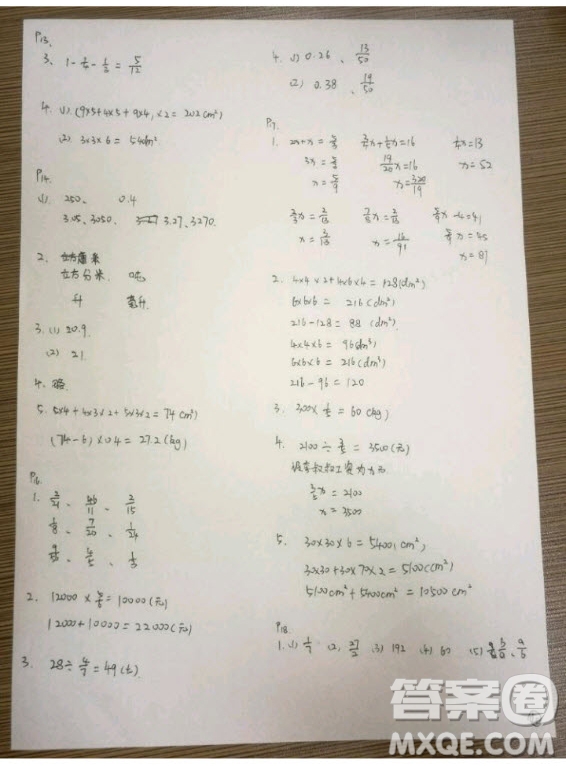 P13.
3. 1 - 1/4 - 1/3 = 5/12
4. (1). (9×5+4×5+9×4)×2=202(cm²)
(2) 3×3×6=54dm².
P14.
(1). 250、 0.4
3.05、3050、 3.27、3270.
2、
立方分米. 吨
升 毫升.
3.(1) 20.9.
(2) 21.
4、略.
5. 5×4+4×3×2+5×3×2=74cm²)
(74-6)×0.4=27.2(kg)
P16.
1. 2/15
1/8、7/20、1/24
1/3
2、12000×5/6=10000(元)
12000+10000=22000(元)
3. 28÷4/7=49(七).
4. (1) 0.26、13/50
(2) 0.38、19/50
P17.
1. 3/4x+1/5x=16 1/4x=13
19/20x=16 x=52
x=320/19
-6=41
x=16/91 =45
x=81
2、4×4×2+4×6×4=128(dm²)
6×6×6=216(dm²)
216-128=88(dm²)
4×4×6=96(dm²)
6×6×6=216(dm²)
216-96=120
3. 300×1/5=60(kg)
4. 2100÷3/5=3500(元)
设李叔叔工资为x元
3/5x=2100
x=3500
5. 30×30×6=5400(cm²)
30×30+30×70×2=5100(cm²)
5100cm²+5400cm²=10500cm²
P18.
1.(1) (2) 27/2 (3) 192 (4) 60 (5)
答案圈
MXQE.COM